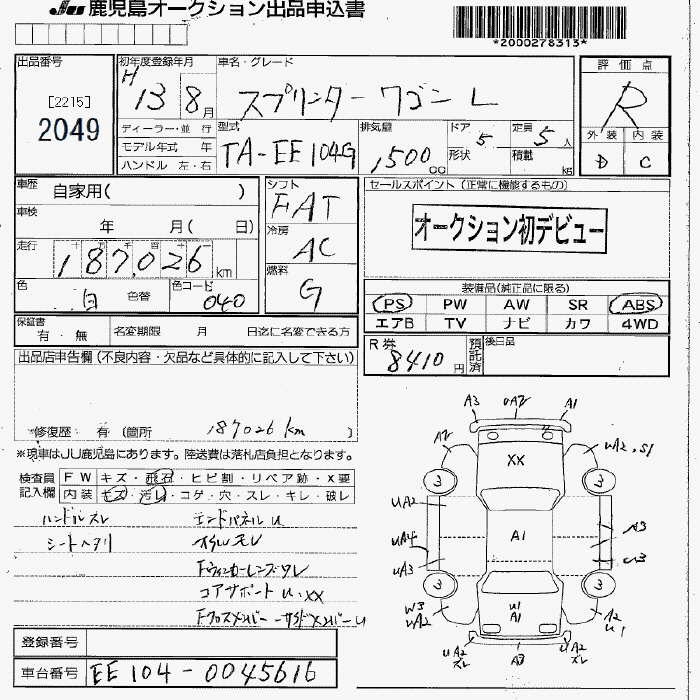 JU 鹿児島オークション出品申込書
*2000278313*
出品番号
[2215]
2049
初年度登録年月
H 13 8月
車名・グレード
スプリンターワゴン L
評価点
R
外装 内装
D C
ディーラー・並行
モデル年式 年
ハンドル 左・右
型式
TA-EE104G
排気量
1500 cc
ドア 5
形状
定員 5人
積載 kg
車歴 自家用( )
車検 年 月( 日)
走行 187,026 km
色 白 色替
色コード 040
シフト
FAT
冷房
AC
燃料
G
セールスポイント(正常に機能するもの)
オークション初デビュー
装備品(純正品に限る)
PS PW AW SR ABS
エアB TV ナビ カワ 4WD
保証書
有・無
名変期限 月 日迄に名変できる方
R券
8410円
預託済
後日品
出品店申告欄(不良内容・欠品など具体的に記入して下さい)
修復歴 有 (箇所 187026km )
※現車はJU鹿児島にあります。陸送費は落札店負担となります。
検査員
記入欄
FW キズ・飛石・ヒビ割・リペア跡・X要
内装 キズ・汚レ・コゲ・穴・スレ・キレ・破レ
ハンドルスレ エンドパネルU
シートヘタリ オイルモレ
Fウィンカーレンズワレ
コアサポートU.XX
Fクロスメンバー サイドメンバーU
A3 UA2 A1
A2 UA2,S1
XX
3 3
UA2
A3
UA4 A1
UA3 U3
3 3
W3
UA2
U1
A1
A2
U1
UA2
ズレ
A3
UA2
ズレ
登録番号
車台番号 EE104-0045616